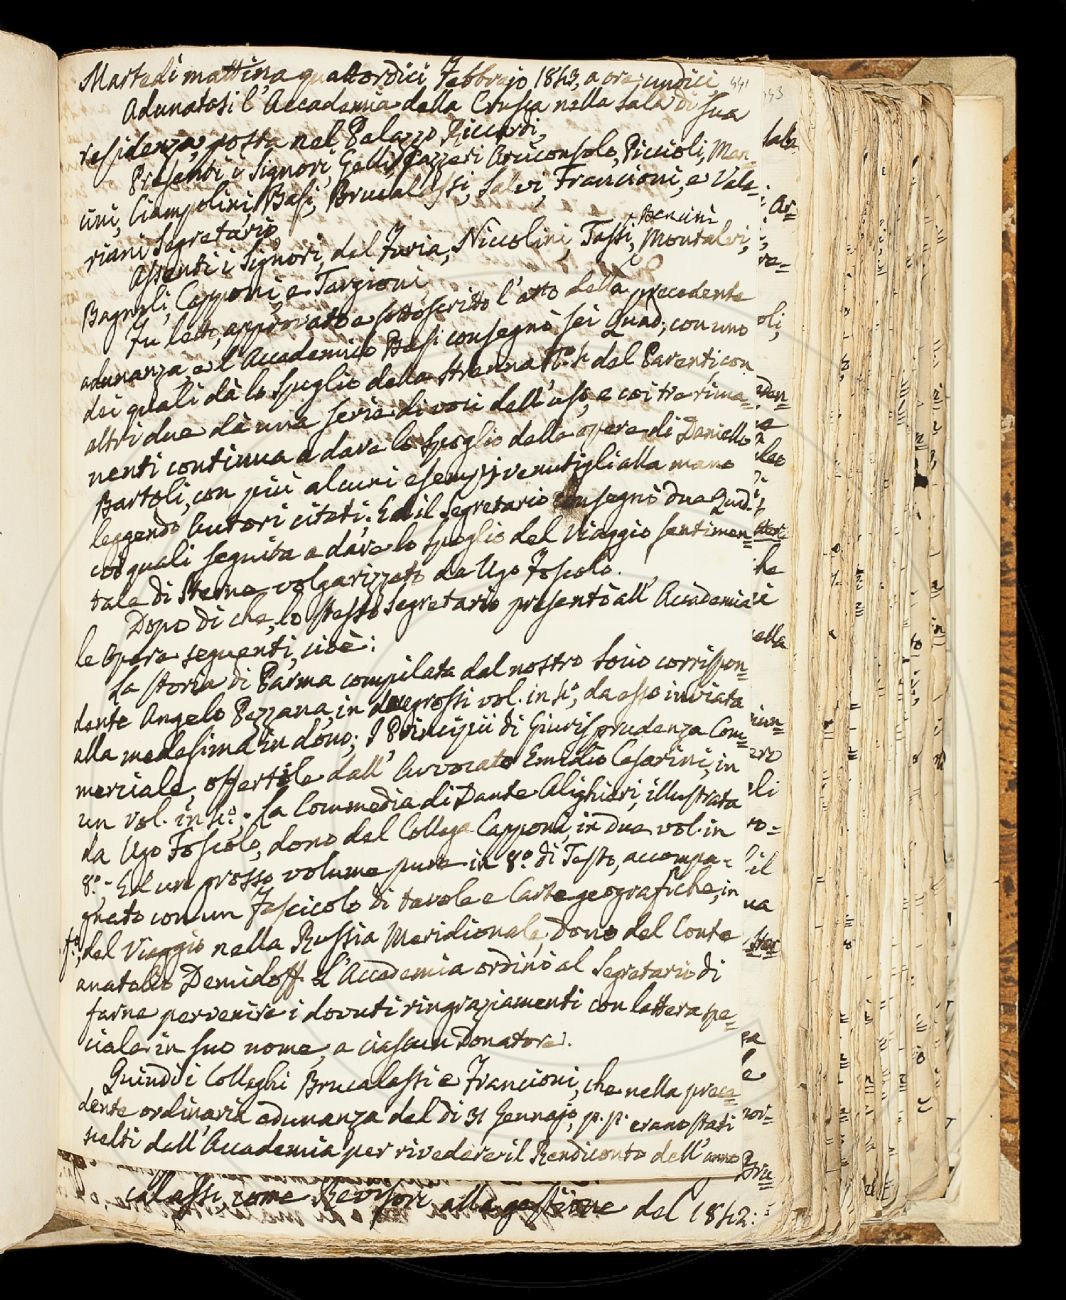 Martedì mattina quattordici Febbrajo 1843, a ore undici
441
Adunatasi l'Accademia della Crusca nella sala di sua
residenza, posta nel Palazzo Riccardi,
Presenti i Signori, Gelli, Gazzeri Arciconsolo, Piccioli, Man-
uni, Ciampolini, Basi, Brucalassi, Salvi, Francioni, e Vale-
riani Segretario
Assenti i Signori, del Furia, Niccolini, Tassi, Bencini Montalvi,
Bagnoli, Capponi e Targioni
Fu letto, approvato e sottoscritto l'atto della precedente
adunanza e l'Accademico Basi consegnò sei Quad, con uno
dei quali dà lo spoglio della Strenna del Parenti con
altri due dà una serie di voci dell'uso, e coi tre rima=
nenti continua a dare lo spoglio delle opere di Daniello
Bartoli, con più alcuni esempj venutigli alla mano
leggendo Autori citati; Ed il Segretario consegnò due Quad.
coi quali seguita a dare lo spoglio del Viaggio sentimen=
tale di Sterne volgarizzato da Ugo Foscolo.
Dopo di che, lo stesso Segretario presentò all'Accademia
le Opere seguenti, cioè:
La storia di Parma compilata dal nostro Socio corrispon=
dente Angelo Pezzana, in due grossi vol. in 4.°, da esso inviata
alla medesima in dono; I Principii di Giurisprudenza Com=
merciale, offertile dall'Avvocato Emidio Cesarini, in
un vol. in 4.° - La Commedia di Dante Alighieri, illustrata
da Ugo Foscolo, dono del Collega Capponi, in due vol. in
8.° - Ed un grosso volume pure in 8.° di Testo, accompa=
gnato con un Fascicolo di tavole e Carte geografiche, in
f.°, del Viaggio nella Russia Meridionale, Dono del Conte
Anatolio Demidoff. E l'Accademia ordinò al Segretario di
farne pervenire i dovuti ringraziamenti con lettera spe=
ciale in suo nome, a ciascun Donatore.
Quindi i Colleghi Brucalassi e Francioni, che nella prece=
dente ordinaria adunanza del dì 31 Gennajo, p.p. erano stati
scelti dall'Accademia per rivedere il Rendiconto dell'anno
calassi, come Revisori alla gestione del 1842: